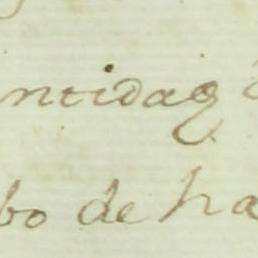 ntidaq
bo de ha